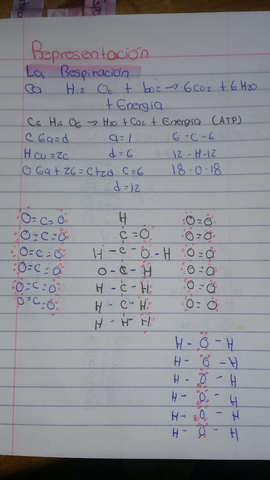 Representación
La Respiración
H12 O6 + 6O2 → 6CO2 + 6H2O
+ Energia
C6 H12 O6 → H2O + CO2 + Energia (ATP)
C 6a=d a=1 6-C-6
d=6 12-H-12
O 6a+2b=c+2d c=6 18-O-18
d=12
O=C=O H O=O
O=C=O C=O O=O
O=C=O H-C-O-H O=O
O=C=O O-C-H O=O
O=C=O H-C-H O=O
O=C=O H-C-H O=O
H-H-H
H-O-H
H-O-H
H-O-H
H-O-H
H-O-H
H-O-H